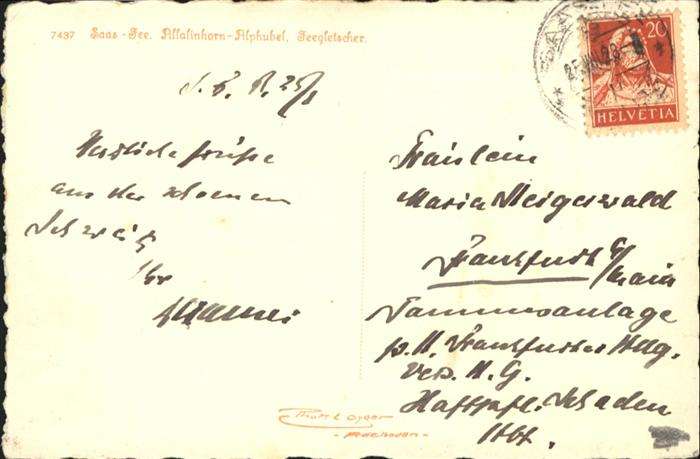 7437 Saas-Fee. Allalinhorn-Alphubel, Feegletscher.
20
HELVETIA
S. F. 25/
Herzliche Grüsse
aus der schoenen
Schweiz
Ihr
Fräulein
Maria Steigerwald
Frankfurt a/Main
Taunusanlage
p. A. Frankfurter Allg.
Vers. A. G.
Haftpfl. Schaden
Abt.